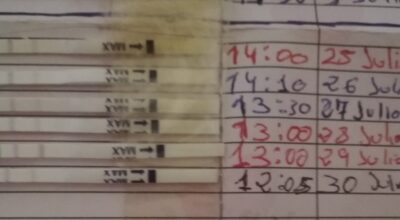 MAX 14:00 25 Juli
MAX 14:10 26 Jul
MAX 13:30 27 Julio
MAX 13:00 28 Julio
MAX 13:00 29 Julio
MAX 12:05 30